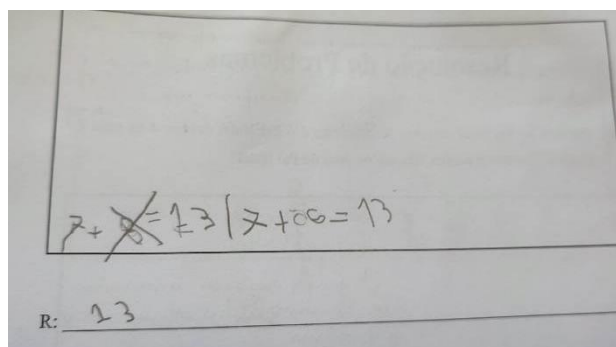 7 + 8 = 13 | 7 + 06 = 13
R: 13